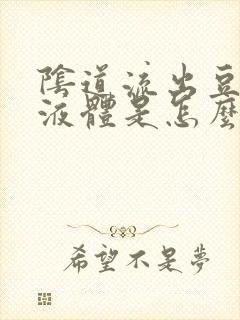 陰道流出豆
液體是怎麼
希望不是夢